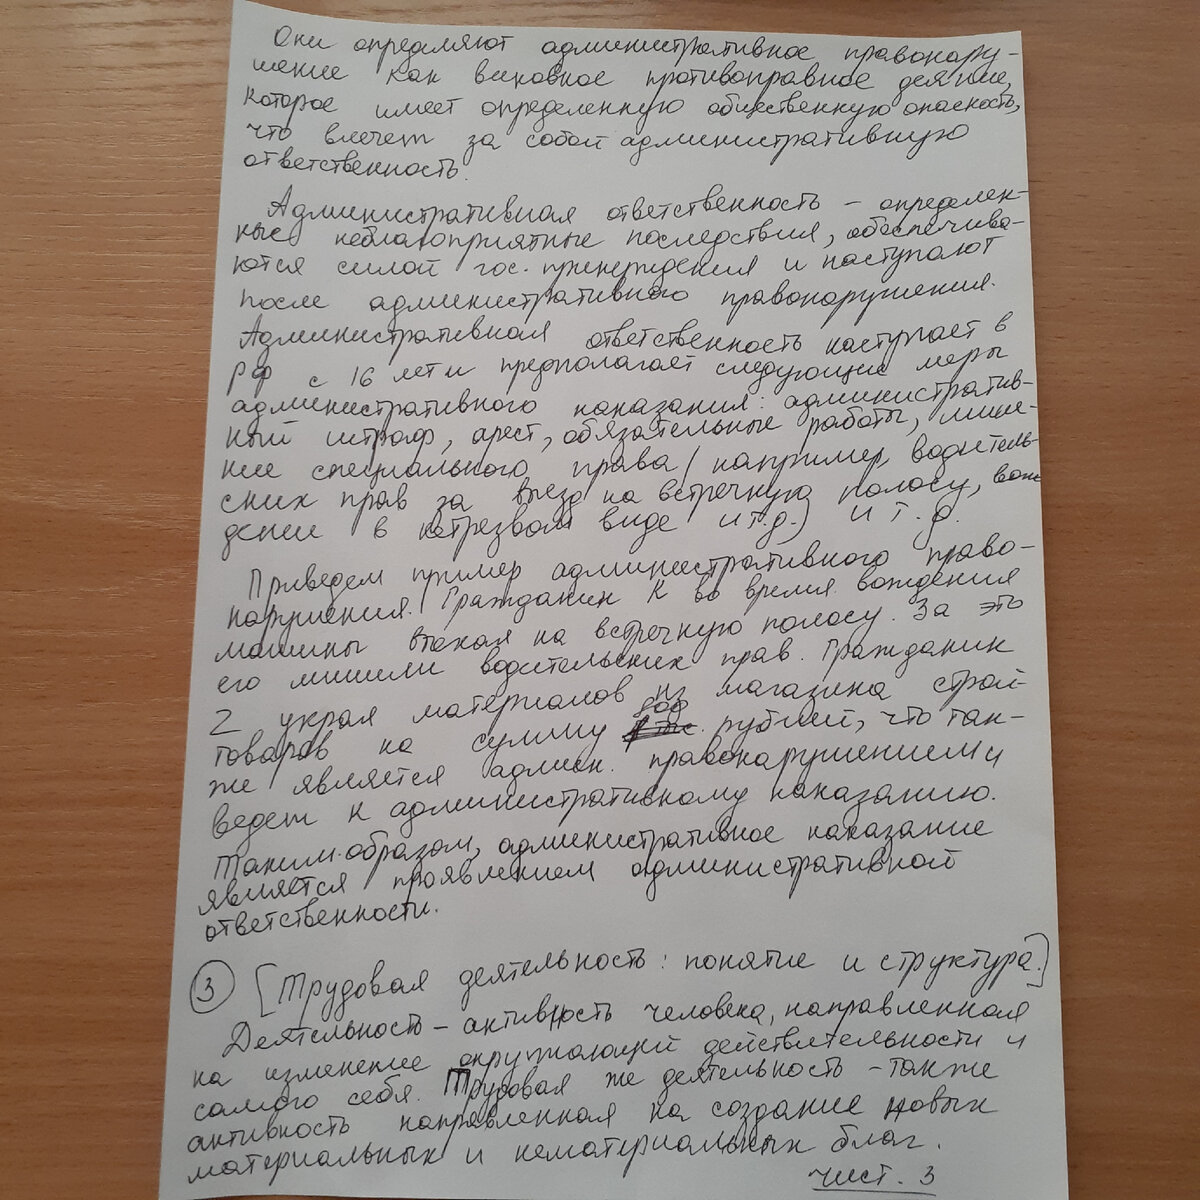 Они определяют административное правонару-
шение как виновное противоправное деяние,
которое имеет определенную общественную опасность,
что влечет за собой административную
ответственность.
Административная ответственность – определен-
ные неблагоприятные последствия, обеспечива-
ются силой гос. принуждения и наступают
после административного правонарушения.
Административная ответственность наступает в
РФ с 16 лет и предполагает следующие меры
административного наказания: административ-
ный штраф, арест, обязательные работы, лише-
ние специального права (например, водитель-
ских прав за выезд на встречную полосу, вож
дение в нетрезвом виде и т.д.) и т.д.
Приведем пример административного право-
нарушения. Гражданин К во время вождения
машины въехал на встречную полосу. За это
его лишили водительских прав. Гражданин
Z украл материалов из магазина строй
товаров на сумму 800 рублей, что так-
же является админ. правонарушением и
ведет к административному наказанию.
Таким образом, административное наказание
является проявлением административной
ответственности.
3 [Трудовая деятельность: понятие и структура.]
Деятельность – активность человека, направленная
на изменение окружающей действительности и
самого себя. Трудовая же деятельность – также
активность направленная на создание новых
материальных и нематериальных благ.
лист. 3